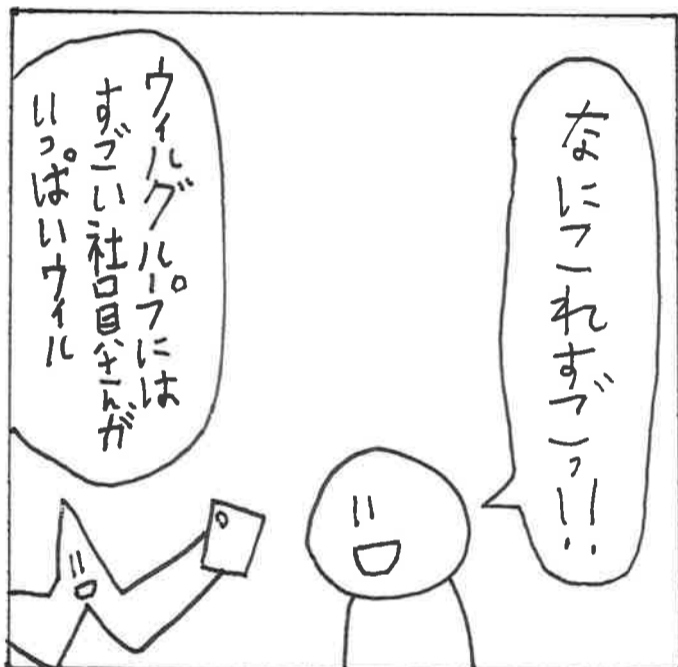 なにこれすごっ!!
ウィルグループには
すごい社員さんが
いっぱいウィル